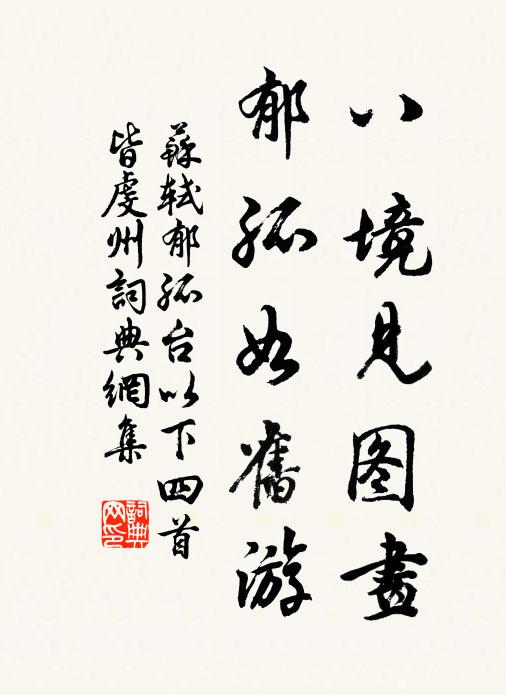 八境見图畫
郁孤如舊游
蘇轼郁孤台以下四首
皆虔州詞典網集
詞典网印